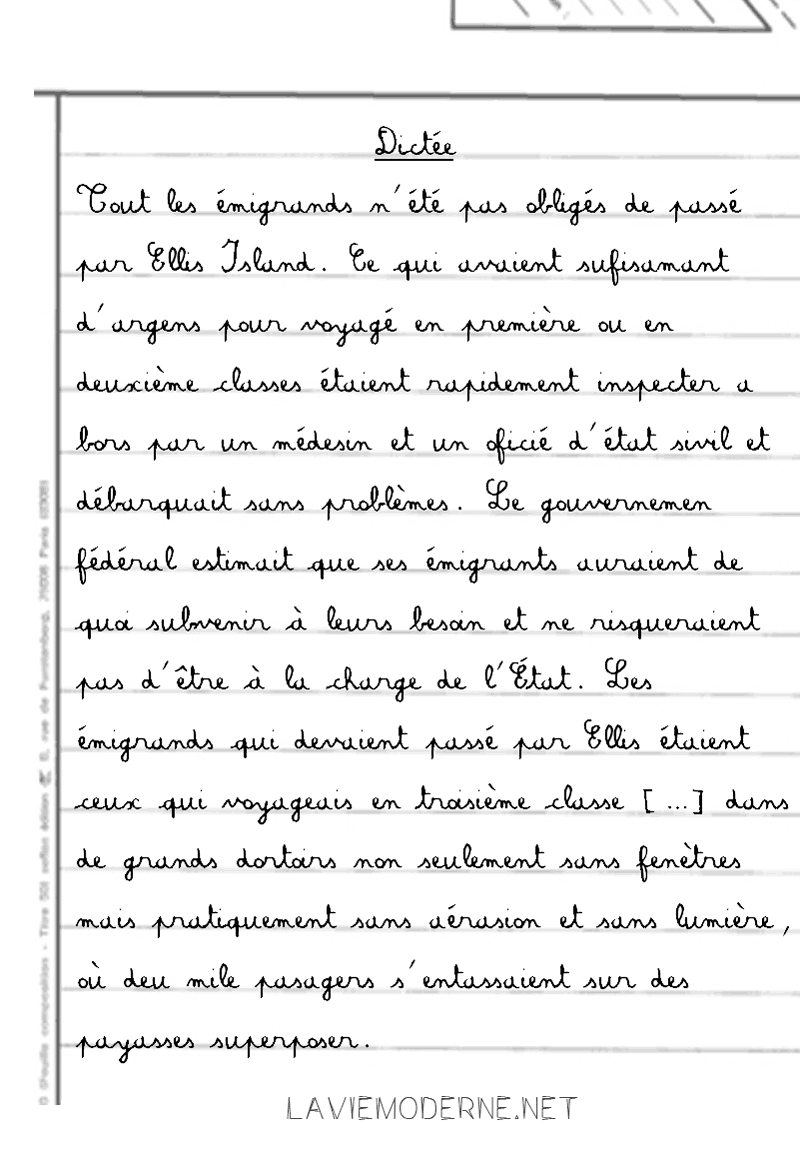 Dictée
Tout les émigrands n'été pas obligés de passé
par Ellis Island. Ce qui avaient sufisamant
d'argens pour voyagé en première ou en
deuxième classes étaient rapidement inspecter a
bors par un médesin et un oficié d'état sivil et
débarquait sans problèmes. Le gouvernemen
fédéral estimait que ses émigrants auraient de
quoi subvenir à leurs besoin et ne risqueraient
pas d'être à la charge de l'État. Les
émigrands qui devaient passé par Ellis étaient
ceux qui voyageais en troisième classe [ ...] dans
de grands dortoirs non seulement sans fenètres
mais pratiquement sans aérasion et sans lumière,
où deu mile pasagers s'entassaient sur des
payasses superposer.
LAVIEMODERNE.NET